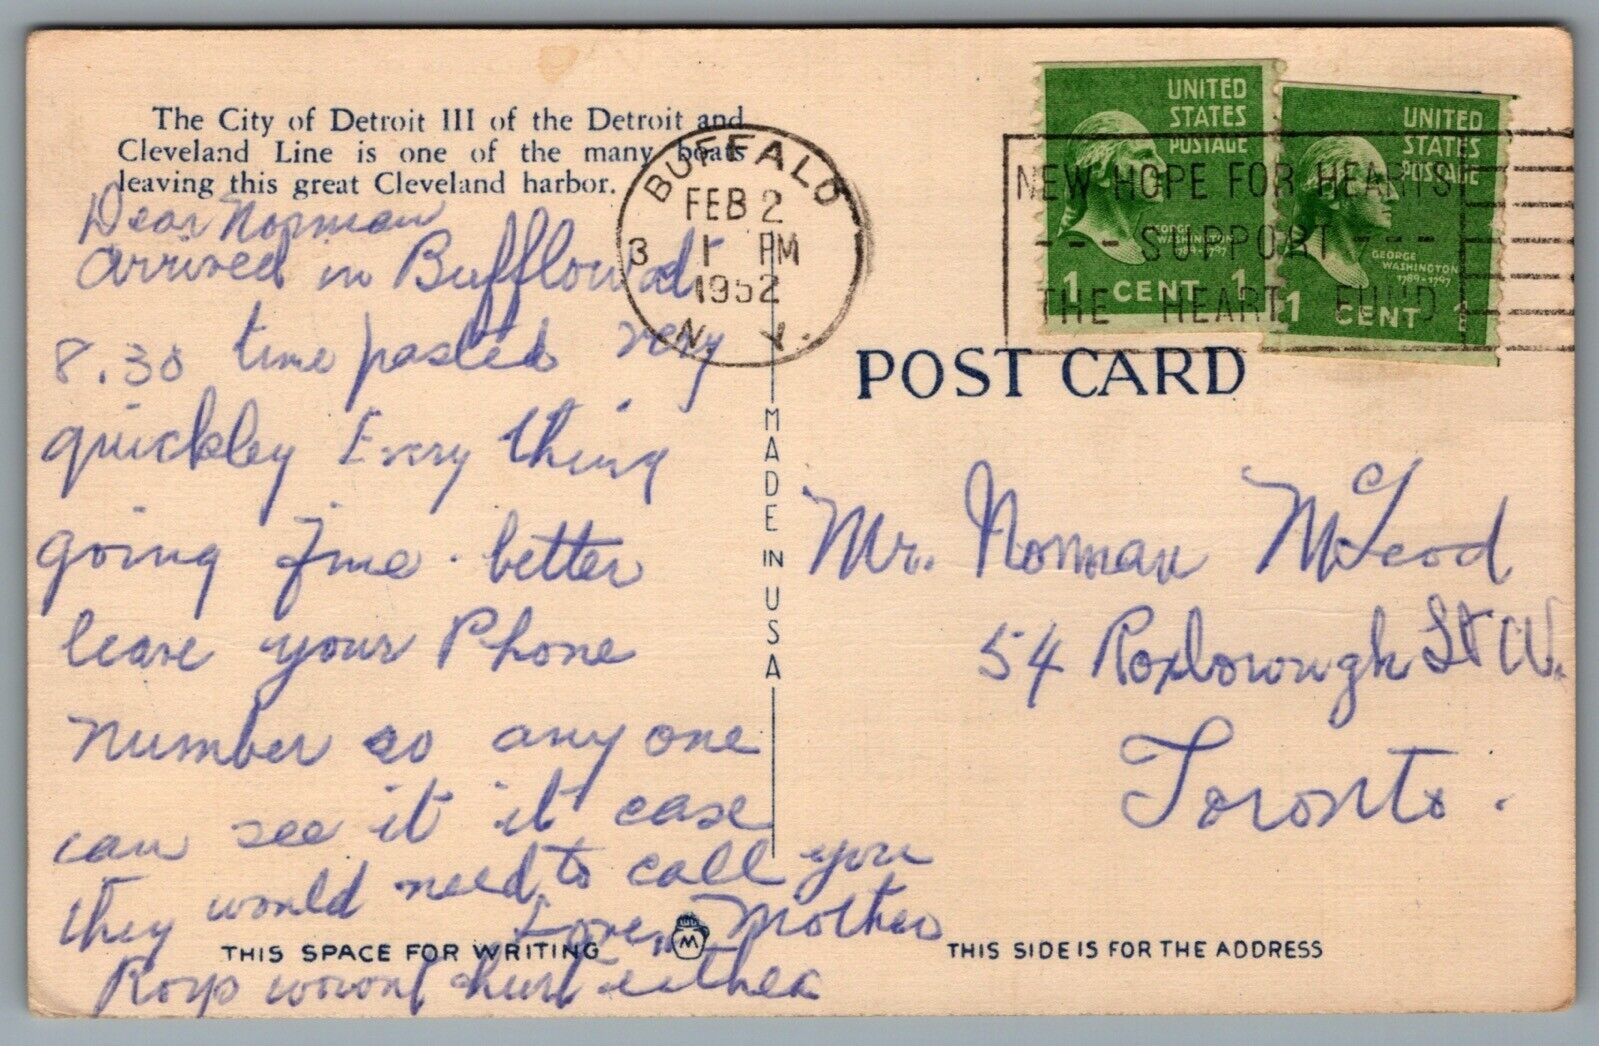 The City of Detroit III of the Detroit and
Cleveland Line is one of the many boats
leaving this great Cleveland harbor.
Dear Norman
arrived in Bufflow at
8.30 time passed very
quickley Every thing
going fine. better
leave your Phone
number so any one
can see it it case
they would need to call you
Love, Mother
Roys wount hurt either
BUFFALO
FEB 2
3 1 PM
1952
N. Y.
NEW HOPE FOR HEARTS
--- SUPPORT ---
THE HEART FUND
UNITED
STATES
POSTAGE
GEORGE
WASHINGTON
1789-1797
1 CENT 1
UNITED
STATES
POSTAGE
GEORGE
WASHINGTON
1789-1797
1 CENT 1
POST CARD
MADE IN USA
Mr. Norman McLeod
54 Roxborough St W.
Toronto.
THIS SPACE FOR WRITING
M
THIS SIDE IS FOR THE ADDRESS